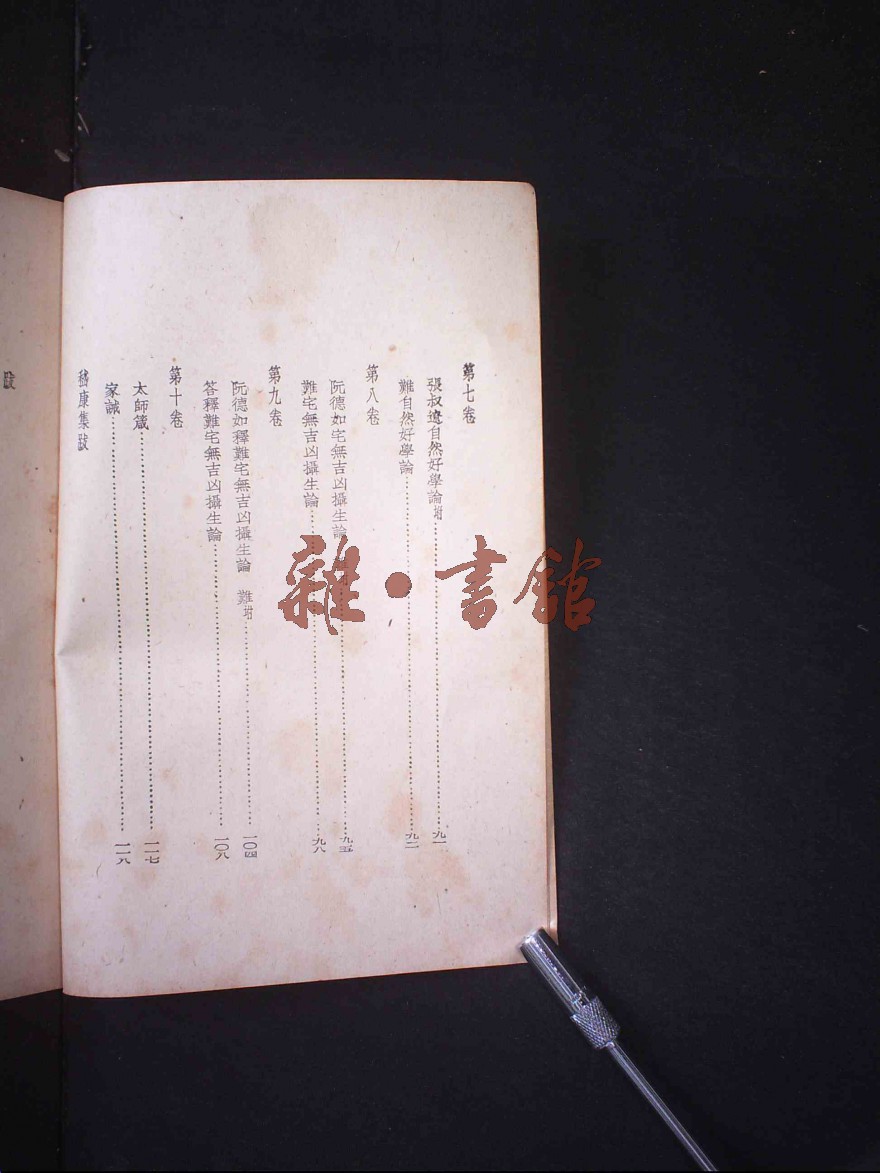 第七卷
張叔遼自然好學論坿……九一
難自然好學論……九二
第八卷
阮德如宅無吉凶攝生論……九五
難宅無吉凶攝生論……九八
第九卷
阮德如釋難宅無吉凶攝生論 難坿……一〇四
答釋難宅無吉凶攝生論……一〇八
第十卷
太師箴……一一七
家誡……一一八
嵇康集跋
跋
雜·書館